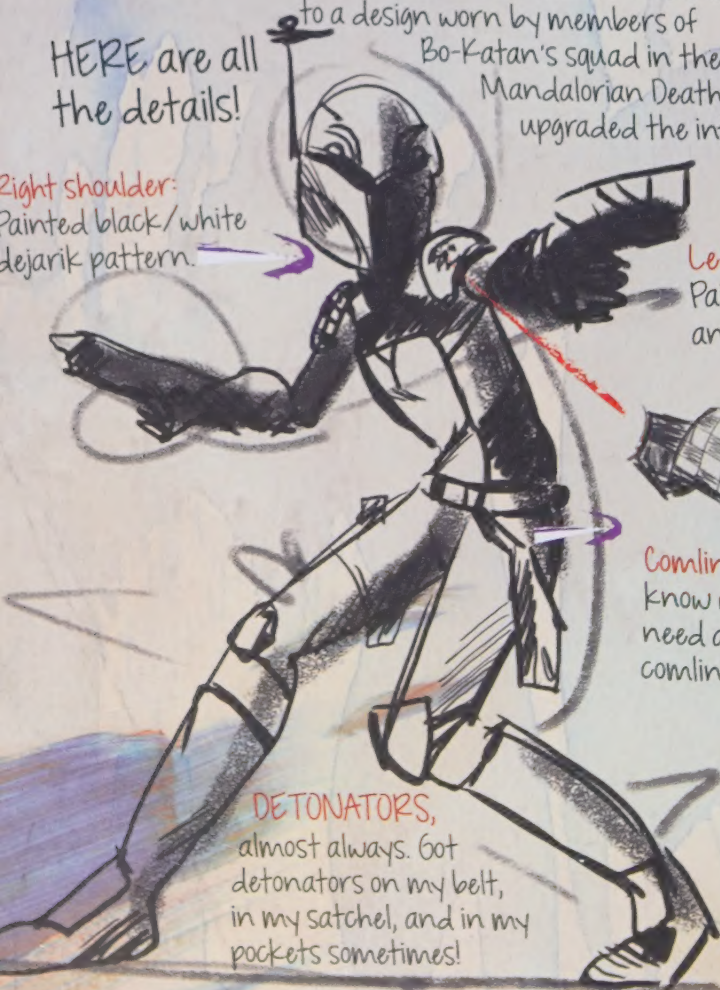 to a design worn by members of
Bo-Katan's squad in the
Mandalorian Death
upgraded the
HERE are all
the details!
Right shoulder:
Painted black/white
dejarik pattern.
know
need
DETONATORS,
almost always. Got
detonators on my belt,
in my satchel, and in my
pockets sometimes!